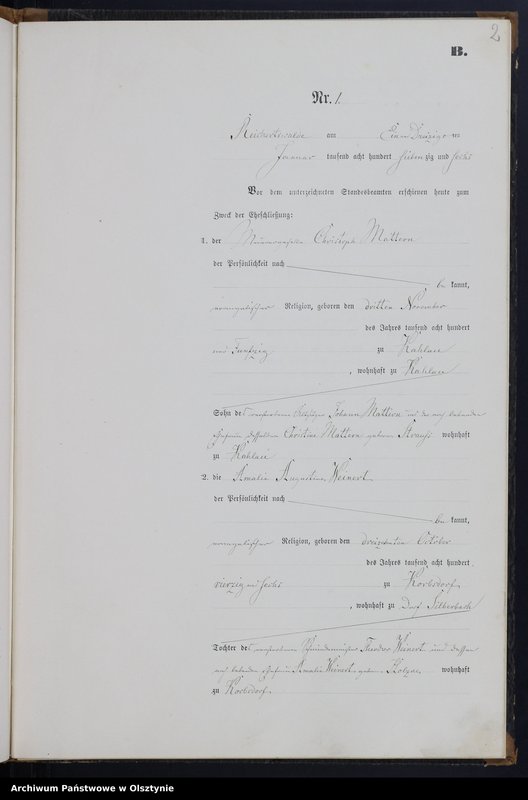 2
B.
Nr. 1.
Reichertswalde am Ein u Dreizigsten
Januar tausend acht hundert siebenzig und sechs
Vor dem unterzeichneten Standesbeamten erschienen heute zum
Zweck der Eheschließung:
1. der Christoph Mattern
der Persönlichkeit nach
be kannt,
evangelischer Religion, geboren den dritten November
des Jahres tausend acht hundert
und Funfzig zu Kahlau
, wohnhaft zu Kahlau
Sohn des verstorbenen Johann Mattern und der noch lebenden
Ehefrau desselben Christine Mattern geborene Strauß wohnhaft
zu Kahlau
2. die Amalie Augustine Weinert
der Persönlichkeit nach
be kannt,
evangelischer Religion, geboren den dreizehnten October
des Jahres tausend acht hundert
vierzig und sechs zu Korbsdorf
, wohnhaft zu Dorf Silberbach
Tochter des verstorbenen Theodor Weinert und dessen
noch lebenden Ehefrau Amalie Weinert geborene wohnhaft
zu Korbsdorf
Archiwum Państwowe w Olsztynie